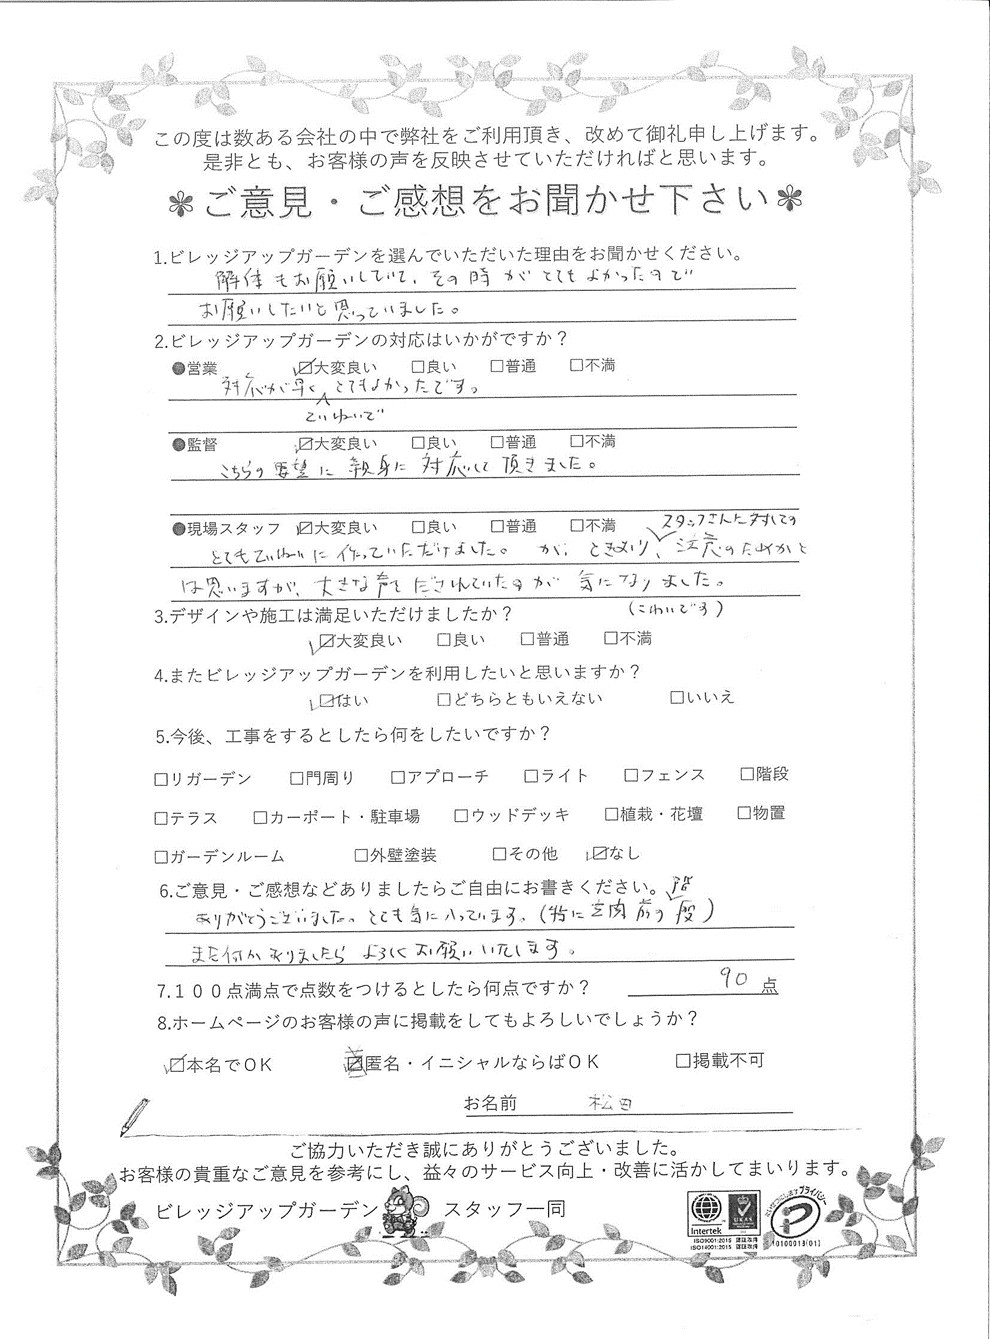 この度は数ある会社の中で弊社をご利用頂き、改めて御礼申し上げます。
是非とも、お客様の声を反映させていただければと思います。
✽ご意見・ご感想をお聞かせ下さい✽
1.ビレッジアップガーデンを選んでいただいた理由をお聞かせください。
解体もお願いしていて、その時がとてもよかったので
お願いしたいと思っていました。
2.ビレッジアップガーデンの対応はいかがですか？
●営業 ☑大変良い □良い □普通 □不満
対応が早く とてもよかったです。
ていねいで
●監督 ☑大変良い □良い □普通 □不満
こちらの要望に親身に対応して頂きました。
●現場スタッフ ☑大変良い □良い □普通 □不満 スタッフさんに対しての
とてもていねいに作っていただけました。が、ときおり、注意のためかと
は思いますが、大きな声でだされていたのが気になりました。
(こわいです)
3.デザインや施工は満足いただけましたか？
☑大変良い □良い □普通 □不満
4.またビレッジアップガーデンを利用したいと思いますか？
☑はい □どちらともいえない □いいえ
5.今後、工事をするとしたら何をしたいですか？
□リガーデン □門周り □アプローチ □ライト □フェンス □階段
□テラス □カーポート・駐車場 □ウッドデッキ □植栽・花壇 □物置
□ガーデンルーム □外壁塗装 □その他 ☑なし
6.ご意見・ご感想などありましたらご自由にお書きください。
階
ありがとうございました。とても気に入っています。(特に玄関前の段)
また何かありましたらよろしくお願いいたします。
7.１００点満点で点数をつけるとしたら何点ですか？ 90 点
8.ホームページのお客様の声に掲載をしてもよろしいでしょうか？
☑本名でOK ☑匿名・イニシャルならばOK □掲載不可
お名前 松田
ご協力いただき誠にありがとうございました。
お客様の貴重なご意見を参考にし、益々のサービス向上・改善に活かしてまいります。
ビレッジアップガーデン スタッフ一同
Intertek
UKAS
ISO9001:2015 認証取得
ISO14001:2015 認証取得
プライバシー